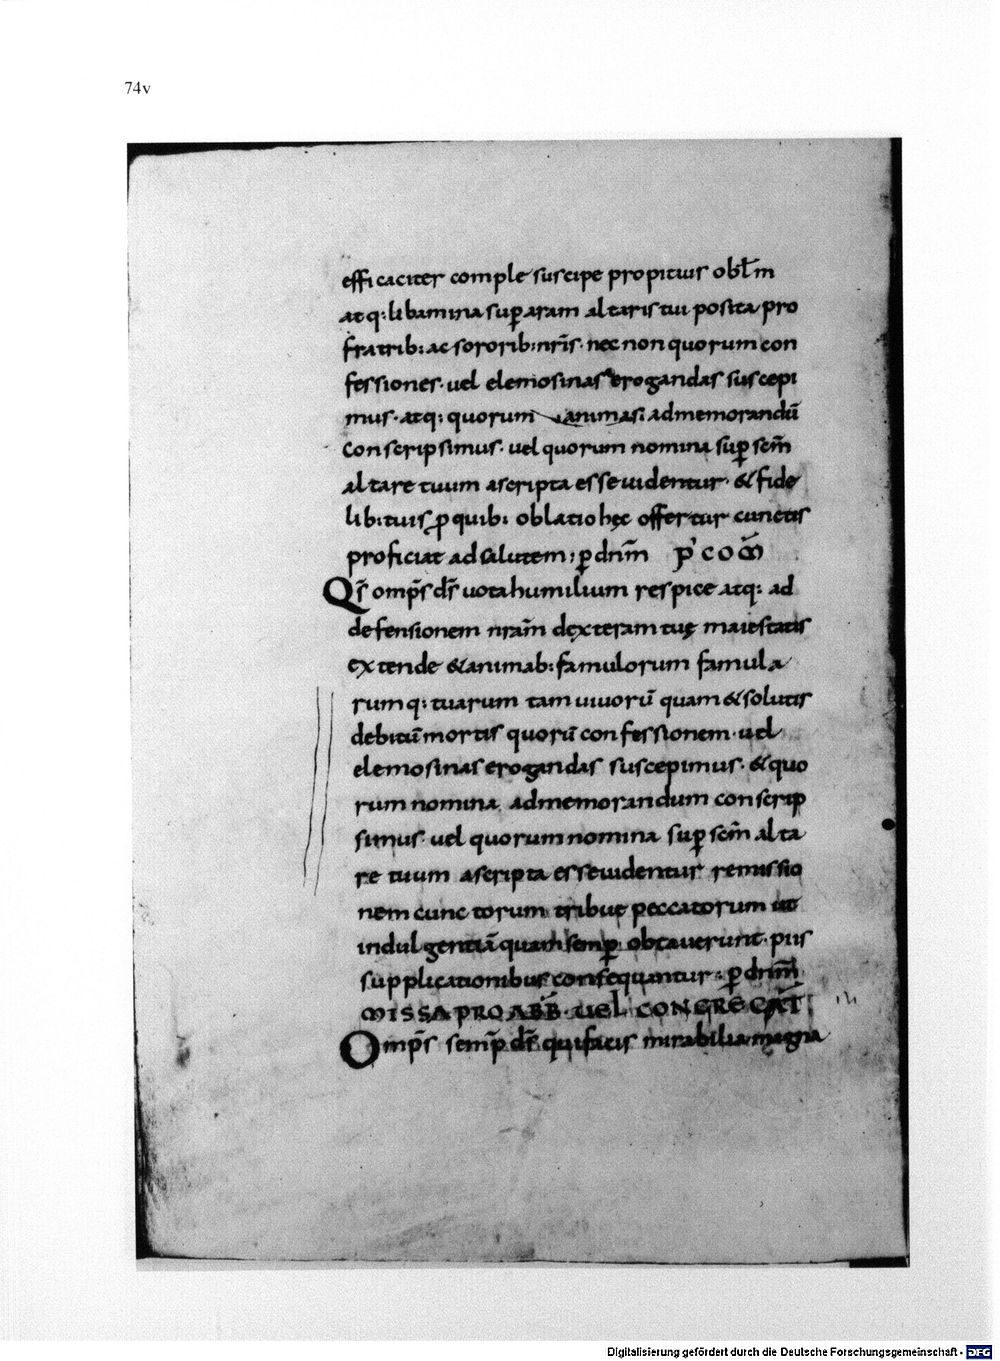 74v
efficaciter comple suscipe propitius obłm
atq: libamina sup̱ aram altaris tui posita pro
fratrib: ac sororib: nr̄is· nec non quorum con
fessiones· uel elemosinas erogandas suscepi
mus· atq: quorum animas: admemorandū
conscripsimus· uel quorum nomina sup̱ sc̄m
altare tuum ascripta esse uidentur· & fide
lib: tuis ꝓ quib: oblatio hęc offertur cunctis
proficiat ad salutem; ꝑ dn̄m p' com̄
Qs̄ omp̄s ds̄ uota humilium respice atq: ad
defensionem nr̄am dexteram tuę maiestatis
extende & animab: famulorum famula
rumq: tuarum tam uiuorū quam & solutis
debitū mortis quorū confessionem· uel
elemosinas erogandas suscepimus· & quo
rum nomina admemorandum conscrip
simus· uel quorum nomina sup̱ sc̄m alta
re tuum ascripta esse uidentur remissio
nem cunctorum tribue peccatorum ut
indulgentiā quam semp̱ obtauerunt· piis
supplicationibus consequantur; ꝑ dn̄m
MISSA PRO ABB̄· UEL CONGREGAT̄
Omp̄s semp̱ ds̄ qui facis mirabilia magna
Digitalisierung gefördert durch die Deutsche Forschungsgemeinschaft - DFG